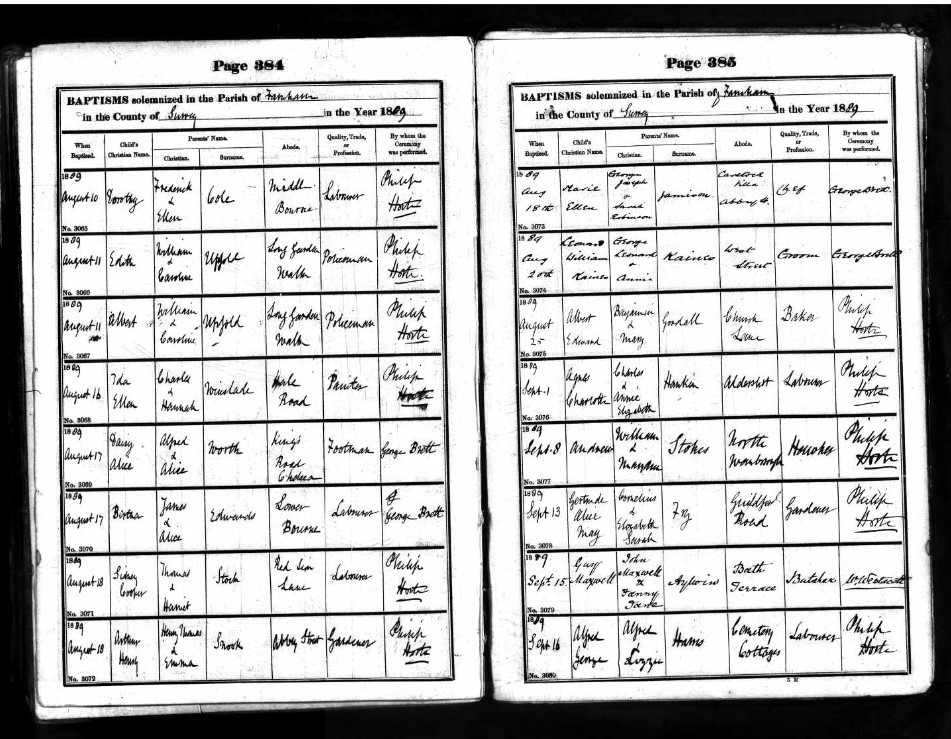 Page 384
BAPTISMS solemnized in the Parish of Farnham
in the County of Surrey in the Year 1889
When Baptized. Child's Christian Name. Parents' Name. Christian. Surname. Abode. Quality, Trade, or Profession. By whom the Ceremony was performed.
1889 August 10 Dorothy Frederick & Ellen Cole Middle Bourne Labourer Philip Horte
No. 3065
1889 August 11 Edith William & Caroline Upfold Long Garden Walk Policeman Philip Horte
No. 3066
1889 August 11 Albert William & Caroline Upfold Long Garden Walk Policeman Philip Horte
No. 3067
1889 August 16 Ida Ellen Charles & Hannah Winslade Hale Road Painter Philip Horte
No. 3068
1889 August 17 Daisy Alice Alfred & Alice Worth Kings Road Chelsea Footman George Brett
No. 3069
1889 August 17 Bertha James & Alice Edwards Lower Bourne Labourer George Brett
No. 3070
1889 August 18 Sidney Cooper Thomas & Harriet Stock Red Lion Lane Labourer Philip Horte
No. 3071
1889 August 18 Arthur Henry Henry Thomas & Emma Snook Abbey Street Gardener Philip Horte
No. 3072
Page 385
BAPTISMS solemnized in the Parish of Farnham
in the County of Surrey in the Year 1889
When Baptized. Child's Christian Name. Parents' Name. Christian. Surname. Abode. Quality, Trade, or Profession. By whom the Ceremony was performed.
1889 Aug 18th Marie Ellen George Joseph & Sarah Robinson Jamison Villa Abbey St. George Brett
No. 3073
1889 Aug 20th Leonard William Kaines George Leonard & Annie Kaines West Street Groom George Brett
No. 3074
1889 August 25 Albert Edward Benjamin & Mary Goodall Church Lane Baker Philip Horte
No. 3075
1889 Sept. 1 Agnes Charlotte Charles & Annie Elizabeth Hankin Aldershot Labourer Philip Horte
No. 3076
1889 Sept. 8 Andrew William & Stokes North Warnborough Philip Horte
No. 3077
1889 Sept 13 Gertrude Alice May Cornelius & Elizabeth Sarah Fry Guildford Road Gardener Philip Horte
No. 3078
1889 Sept. 15 Guy Maxwell John Maxwell & Fanny Jane Aylwin Bath Terrace Butcher
No. 3079
1889 Sept 16 Alfred George Alfred & Lizzie Cemetery Cottages Labourer Philip Horte
No. 3080
5 E